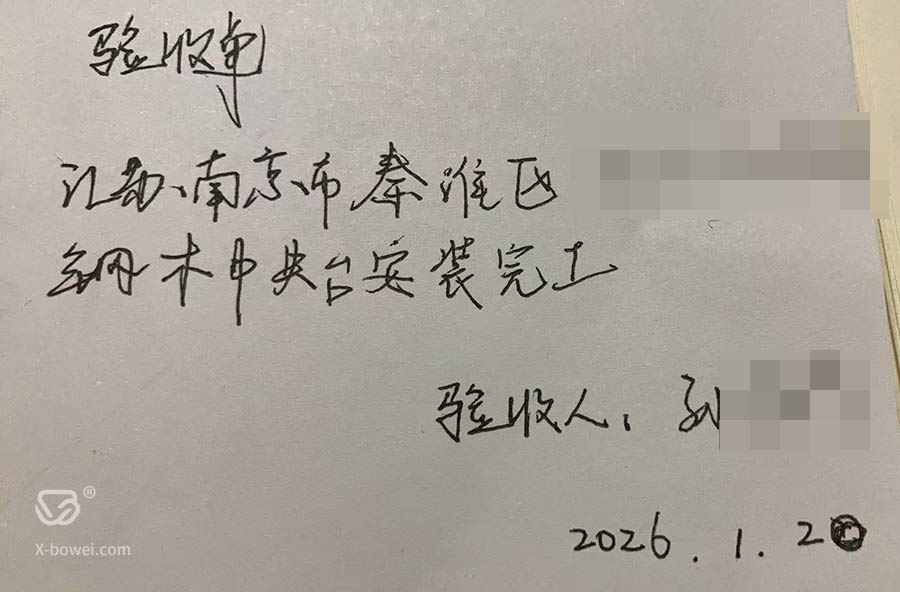 验收单
江苏南京市秦淮区
钢木中央台安装完工
验收人:
2026.1.2
®
X-bowei.com